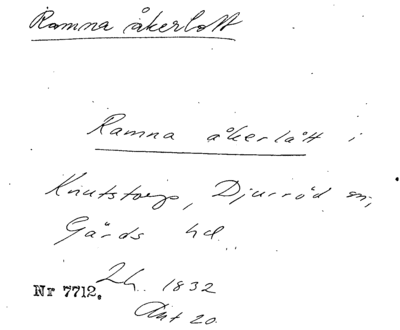 Ramna åkerlott
Ramna åkerlått i
Knutstorp, Djurröd sn,
Gärds hd.
Lh. 1832
Nr 7712.
Akt 20.